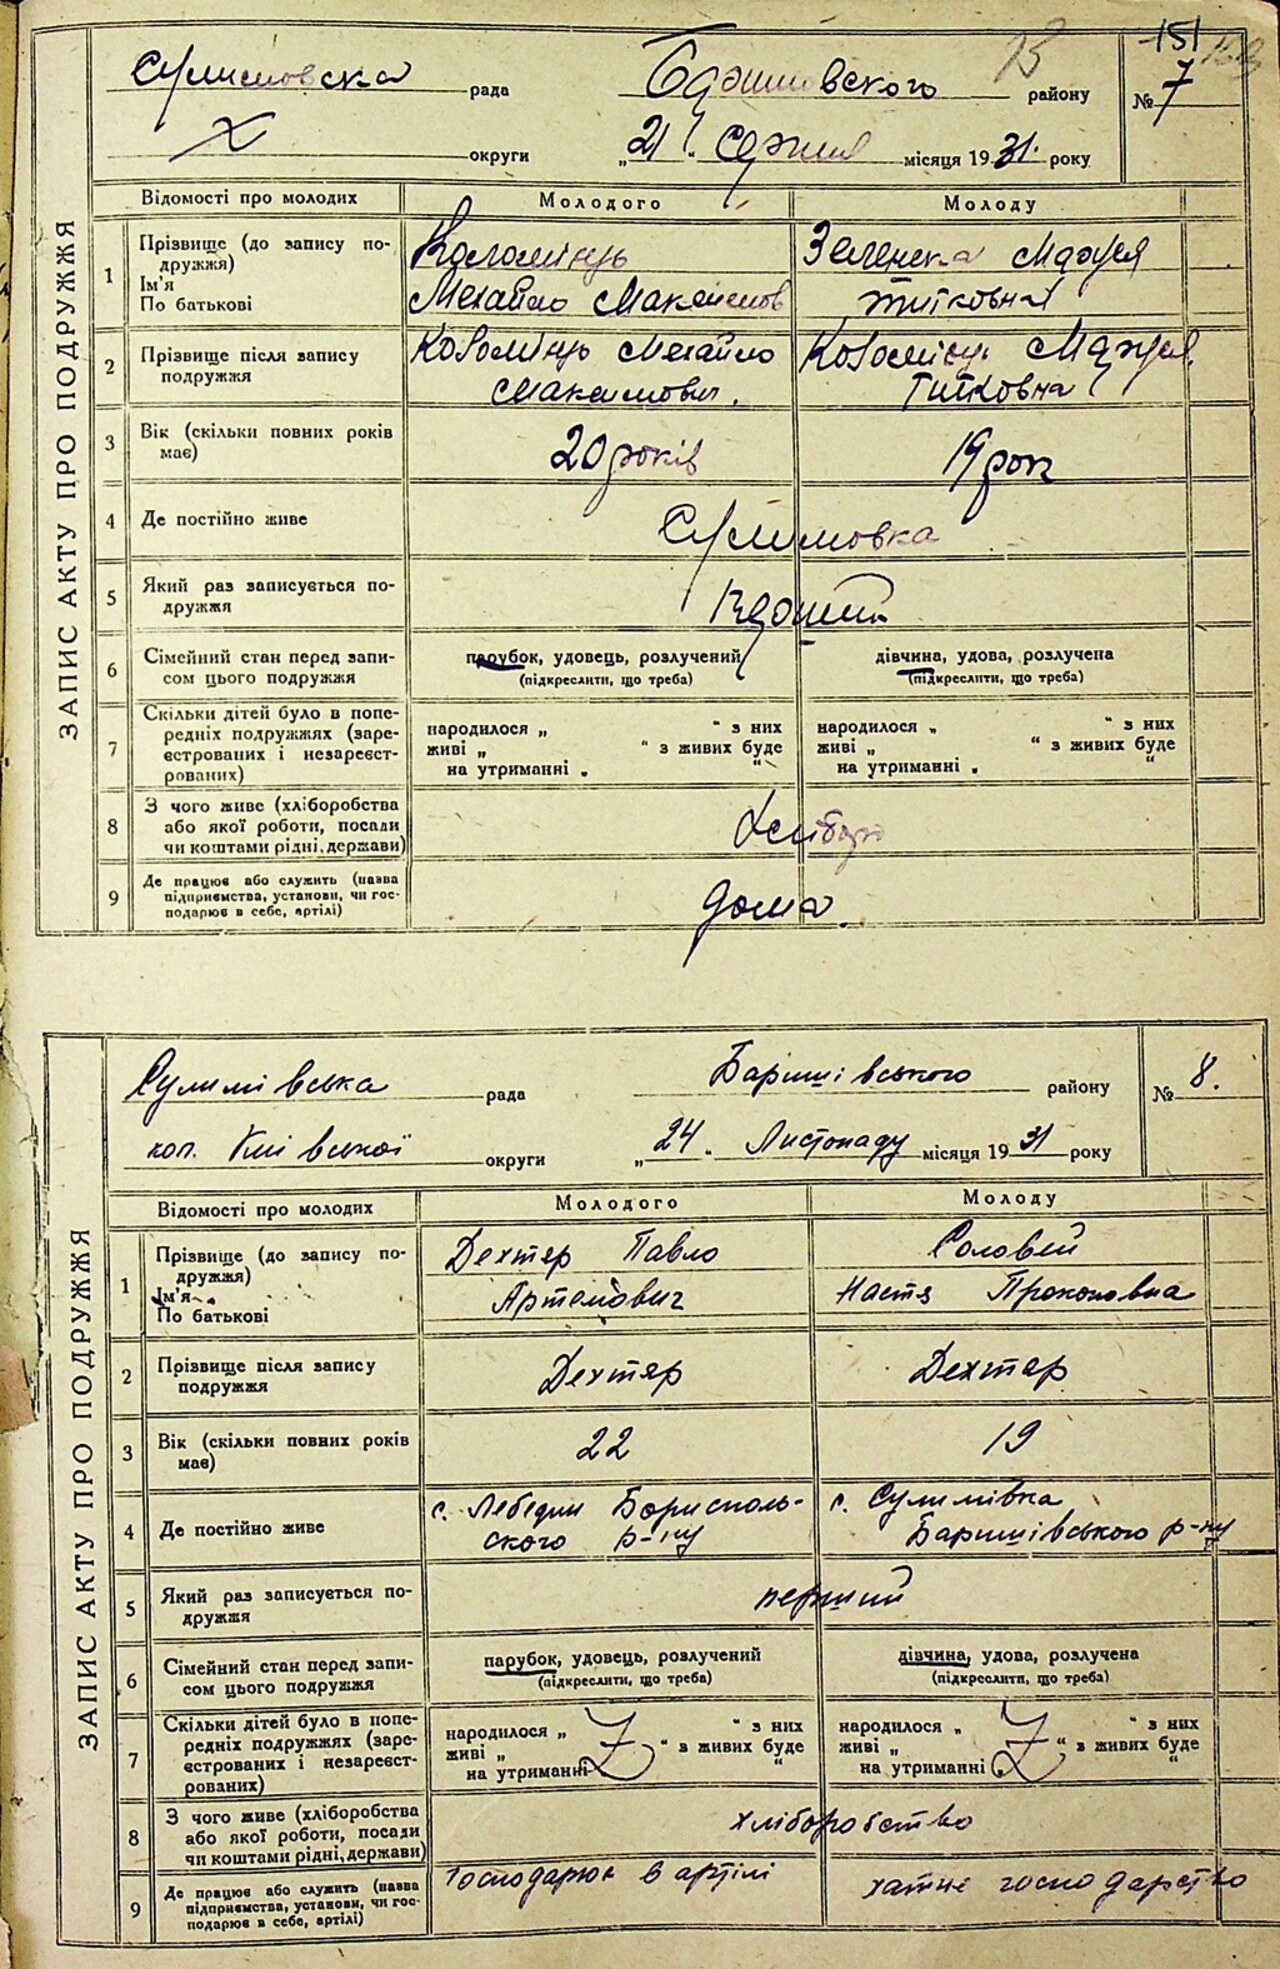 151
Сулимовска рада Баришовського району № 7
округи „21“ Серпня місяця 1931 року
ЗАПИС АКТУ ПРО ПОДРУЖЖЯ
Відомості про молодих Молодого Молоду
1 Прізвище (до запису по-
дружжя)
Ім'я
По батькові
Коломієць
Михайло Максимов
Зеленска Марія
Титковна
2 Прізвище після запису
подружжя
Коломієць Михайло
Максимович.
Коломієць Марія
Титковна
3 Вік (скільки повних років
має)
20 років 19 рок
4 Де постійно живе
Сулимовка
5 Який раз записується по-
дружжя
6 Сімейний стан перед запи-
сом цього подружжя
парубок, удовець, розлучений
(підкреслити, що треба)
дівчина, удова, розлучена
(підкреслити, що треба)
7 Скільки дітей було в попе-
редніх подружжях (заре-
єстрованих і незареєст-
рованих)
народилося „ “ з них
живі „ “ з живих буде
на утриманні „ “
народилося „ “ з них
живі „ “ з живих буде
на утриманні „ “
8 З чого живе (хліборобства
або якої роботи, посади
чи коштами рідні, держави)
9 Де працює або служить (назва
підприємства, установи, чи гос-
подарює в себе, артілі)
дома.
Сулимівська рада Баришівського району № 8.
кол. Київської округи „24“ Листопаду місяця 1931 року
ЗАПИС АКТУ ПРО ПОДРУЖЖЯ
Відомості про молодих Молодого Молоду
1 Прізвище (до запису по-
дружжя)
Ім'я
По батькові
Дехтяр Павло
Артемович
Соловей
Настя Прокоповна
2 Прізвище після запису
подружжя
Дехтяр Дехтяр
3 Вік (скільки повних років
має)
22 19
4 Де постійно живе
с. Лебедин Бориспол-
ського р-ну
с. Сулимівка
Баришівського р-ну
5 Який раз записується по-
дружжя
перший
6 Сімейний стан перед запи-
сом цього подружжя
парубок, удовець, розлучений
(підкреслити, що треба)
дівчина, удова, розлучена
(підкреслити, що треба)
7 Скільки дітей було в попе-
редніх подружжях (заре-
єстрованих і незареєст-
рованих)
народилося „ “ з них
живі „ “ з живих буде
на утриманні „ “
народилося „ “ з них
живі „ “ з живих буде
на утриманні „ “
8 З чого живе (хліборобства
або якої роботи, посади
чи коштами рідні, держави)
хліборобство
9 Де працює або служить (назва
підприємства, установи, чи гос-
подарює в себе, артілі)
Господарює в артілі хатнє господарство